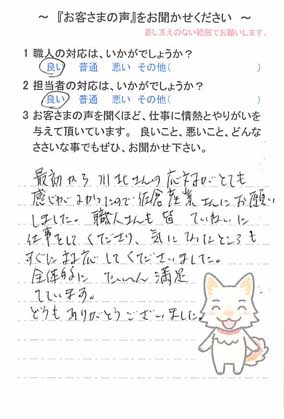 ～ 『お客さまの声』をお聞かせください ～
差しまえのない範囲でお願いします。
1 職人の対応は、いかがでしょうか?
良い 普通 悪い その他( )
2 担当者の対応は、いかがでしょうか?
良い 普通 悪い その他( )
3 お客さまの声を聞くほど、仕事に情熱とやりがいを
与えて頂いています。 良いこと、悪いこと、どんな
ささいな事でもぜひ、お聞かせ下さい。
最初から川北さんの応対がとても
感じがよかったので佐倉産業さんにお願い
しました。職人さんも皆 ていねいに
仕事をしてくださり、気になったところも
すぐに対応してくださいました。
全体的に たいへん 満足
しています。
どうもありがとうございました。